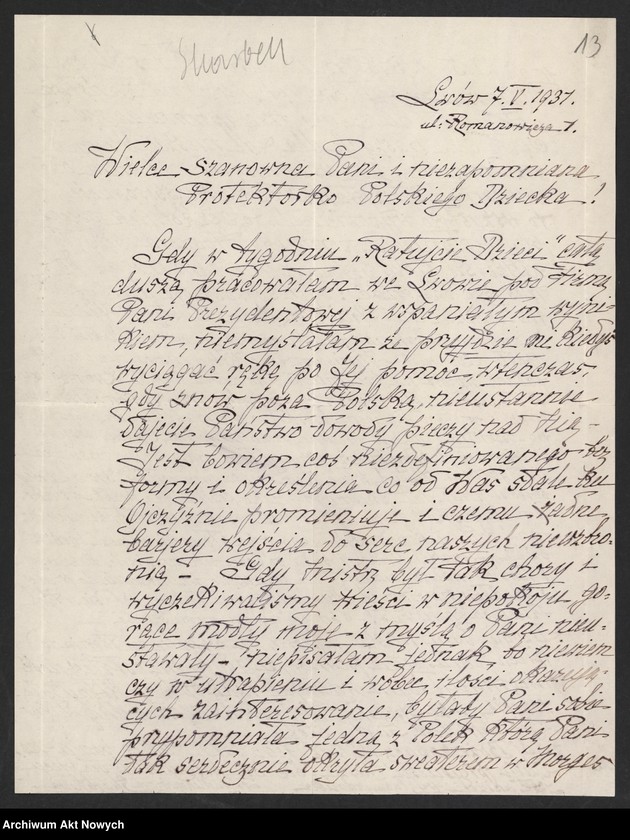 Skarbek
13
Lwów 7.V.1931.
ul: Romanowicza 1.
Wielce szanowna Pani i niezapomniana
Protektorko Polskiego Dziecka!
Gdy w tygodniu „Ratujcie Dzieci" całą
duszą pracowałam we Lwowie pod firmą
Pani Prezydentowej z wspaniałym wyni-
kiem, niemyślałam że przyjdzie mi kiedyś
wyciągać rękę po Jej pomoc, wtenczas,
gdy znów poza Polską, nieustannie
dajecie Państwo dowody pieczy nad Nią –
Jest bowiem coś niezdefiniowanego – bez
formy i określenia co od Was stale ku
Ojczyźnie promieniuje i czemu żadne
barjery wejścia do serc naszych niewzbro-
nią – Gdy Mistrz był tak chory i
wyczekiwaliśmy wieści w niepokoju go-
rące modły moje z myślą o Pani nieu-
stawały – niepisałam jednak, bo niewiem
czy w utrapieniu i wobec ilości okazują-
cych zainteresowanie, byłaby Pani sobie
przypomniała jedną z Polek którą Pani
tak serdecznie okryła sweaterem w Morges
Archiwum Akt Nowych